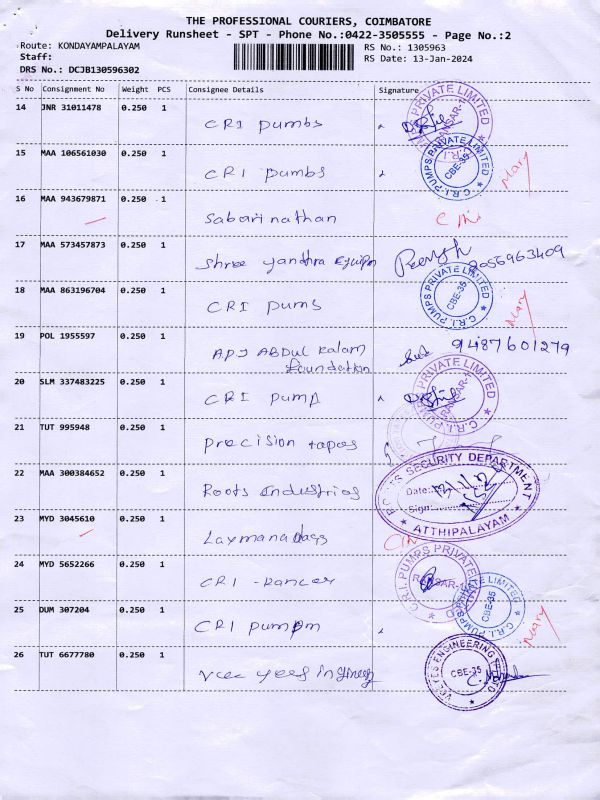 THE PROFESSIONAL COURIERS, COIMBATORE
Delivery Runsheet - SPT - Phone No.:0422-3505555 - Page No.:2
Route: KONDAYAMPALAYAM RS No.: 1305963
Staff: RS Date: 13-Jan-2024
DRS No.: DCJB130596302
S No Consignment No Weight PCS Consignee Details Signature
14 JNR 31011478 0.250 1
CRI pumbs
PRIVATE LIMITED
15 MAA 106561030 0.250 1
CRI pumbs
C.R.I. PUMPS PRIVATE LIMITED
CBE-35
Mary
16 MAA 943679871 0.250 1
Sabari nathan
17 MAA 573457873 0.250 1
Shree yanthra Equipm
9056963409
18 MAA 863196704 0.250 1
CRI pums
C.R.I. PUMPS PRIVATE LIMITED
CBE-35
Mary
19 POL 1955597 0.250 1
APJ ABDUL Kalam
foundation
9487601279
20 SLM 337483225 0.250 1
CRI pump
PRIVATE LIMITED
21 TUT 995948 0.250 1
precision tapes
22 MAA 300384652 0.250 1
Roots Industries
SECURITY DEPARTMENT
Date:
Sign:
ATTHIPALAYAM
23 MYD 3045610 0.250 1
24 MYD 5652266 0.250 1
C.R.I. PUMPS PRIVATE
25 DUM 307204 0.250 1
CRI pumpm
C.R.I. PUMPS PRIVATE LIMITED
CBE-35
Mary
26 TUT 6677780 0.250 1
Vee yees
ENGINEERING
CBE-35